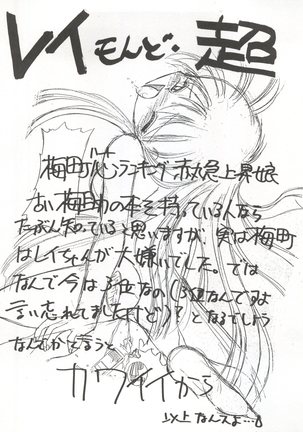 レイもんど・超
梅町心ランキング赤丸急上昇娘
ない梅町の本を持っている人なら
たぶん知っていると思いますが、実は梅町
はレイちゃんが大嫌いでした。では
なんで今は3位なの(3位なんですよ
言い忘れてましたけど)?となるでしょう
なんでかって言うと
カワイイから
以上なんスよ…